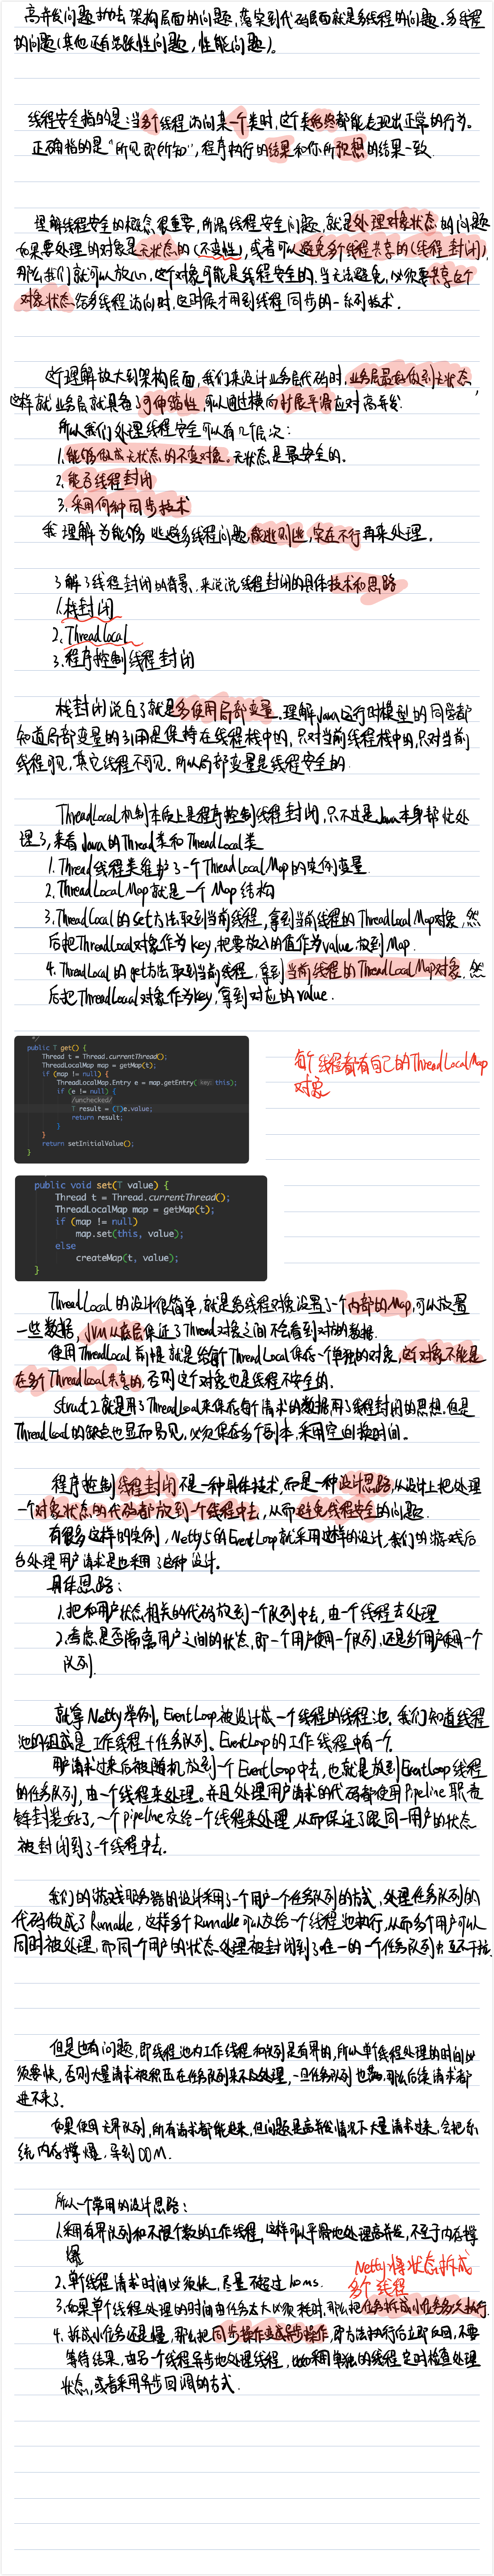 高并发问题抛去架构层面的问题，落实到代码层面就是多线程的问题。多线程
的问题（其他还有活跃性问题，性能问题）。
线程安全指的是：当多个线程访问某一个类时，这个类始终都能表现出正常的行为。
正确指的是“所见即所知”，程序执行的结果和你所预想的结果一致
理解线程安全的概念很重要，所谓线程安全问题，就是处理对象状态的问题
如果要处理的对象是无状态的（不变性），或者可以避免多个线程共享的（线程封闭），
那么我们就可以放心，这个对象可能是线程安全的。当无法避免，必须要共享这个
对象状态给多线程访问时，这时候才用到线程同步的一系列技术。
这个理解放大到架构层面，我们来设计业务层代码时，业务层最好做到无状态，
这样就业务层就具备了可伸缩性，可以通过横向扩展平滑应对高并发
所以我们处理线程安全可以有几个层次：
1.能够做成无状态的不变对象。无状态是最安全的。
2.能否线程封闭
3.采用何种同步技术
我理解为能够逃避多线程问题，能逃则逃，实在不行再来处理。
了解了线程封闭的背景，来说说线程封闭的具体技术和思路
1.栈封闭
2.ThreadLocal
3.程序控制线程封闭
栈封闭说白了就是多使用局部变量。理解Java运行时模型的同学都
知道局部变量的引用是保持在线程栈中的，只对当前线程栈中的，只对当前
线程可见，其它线程不可见。所以局部变量是线程安全的
ThreadLocal机制本质上是程序控制线程封闭，只不过是Java本身帮忙处
理了，来看Java的Thread类和ThreadLocal类
1.Thread线程类维护了一个ThreadLocalMap的实例变量
2.ThreadLocalMap就是一个Map结构
3.ThreadLocal的set方法取到当前线程，拿到当前线程的ThreadLocalMap对象，然
后把ThreadLocal对象作为key，把要放入的值作为value，放到Map
4.ThreadLocal的get方法取到当前线程，拿到当前线程的ThreadLocalMap对象，然
后把ThreadLocal对象作为key，拿到对应的value.
*/
public T get() {
Thread t = Thread.currentThread();
ThreadLocalMap map = getMap(t);
if (map != null) {
ThreadLocalMap.Entry e = map.getEntry( key: this);
if (e != null) {
/unchecked/
T result = (T)e.value;
return result;
}
}
return setInitialValue();
}
每个线程都有自己的ThreadLocalMap
对象
public void set(T value) {
Thread t = Thread.currentThread();
ThreadLocalMap map = getMap(t);
if (map != null)
map.set(this, value);
else
createMap(t, value);
}
ThreadLocal的设计很简单，就是给线程对象设置了一个内部的Map，可以放置
一些数据，JVM从底层保证了Thread对象之间不会看到对方的数据
使用ThreadLocal前提就是给每个ThreadLocal保存一个单独的对象，这个对象不能是
在多个ThreadLocal共享的，否则这个对象也是线程不安全的。
struct2就是用了ThreadLocal来保存每个请求的数据，用了线程封闭的思想，但是
ThreadLocal的缺点也显而易见，必须保存多个副本，采用空间换时间。
程序控制线程封闭，不是一种具体技术，而是一种设计思路，从设计上把处理
一个对象状态的代码都放到一个线程中去，从而避免线程安全的问题
有很多这样的实例，Netty5的EventLoop就采用这样的设计，我们的游戏后
台处理用户请求是也采用了这种设计。
具体思路：
1.把和用户状态相关的代码放到一个队列中去，由一个线程去处理
2.考虑是否隔离用户之间的状态，即一个用户使用一个队列，还是多个用户使用一个
队列.
就拿Netty举例，EventLoop被设计成一个线程的线程池，我们知道线程
池的组成是工作线程+任务队列，EventLoop的工作线程中有一个.
用户请求过来后被随机放到一个EventLoop中去，也就是放到EventLoop线程
的任务队列，由一个线程来处理。并且处理用户请求的代码都使用Pipeline职责
链封装好了，一个Pipeline交给一个线程来处理，从而保证了跟同一用户的状态
被封闭到了一个线程中去.
我们的游戏服务器的设计采用了一个用户一个任务队列的方式，处理任务队列的
代码做成了Runnable，这样多个Runnable可以交给一个线程池执行，从而多个用户可以
同时被处理，而同一个用户的状态处理被封闭到了唯一的一个任务队列中，互不干扰.
但是也有问题，即线程池内工作线程和队列是有界的，所以单个线程处理的时间必
须要快，否则大量请求被积压在任务队列来不及处理，一旦任务队列也满，那么后续请求都
进不来了.
如果使用无界队列，所有请求都能进来，但问题是高并发情况下大量请求过来，会把系
统内存撑爆，导致OOM.
所以一个常用的设计思路：
1.采用有界队列和不限个数的工作线程，这样可以平滑地处理高并发，不至于内存撑
爆
2.单个线程请求时间必须快，尽量不超过10ms.
Netty将状态拆成
多个线程
3.如果单个线程处理的时间由任务太大必须耗时，那么把任务拆成小任务多次执行.
4.拆成小任务还是慢，那么把同步操作变成异步操作，即方法执行后立即返回，不要
等待结果，由另一个线程异步地处理线程，采用单独的线程定时检查处理
状态，或者采用异步回调的方式.